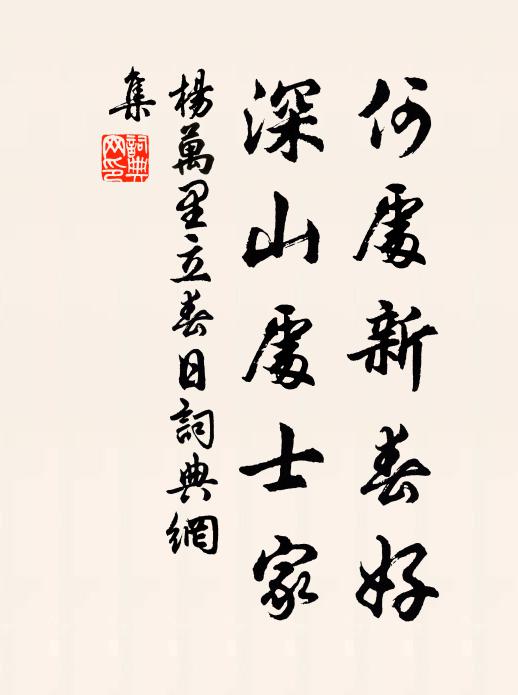 何處新春好
深山處士家
楊萬里立春日詞典網
集
詞典網印